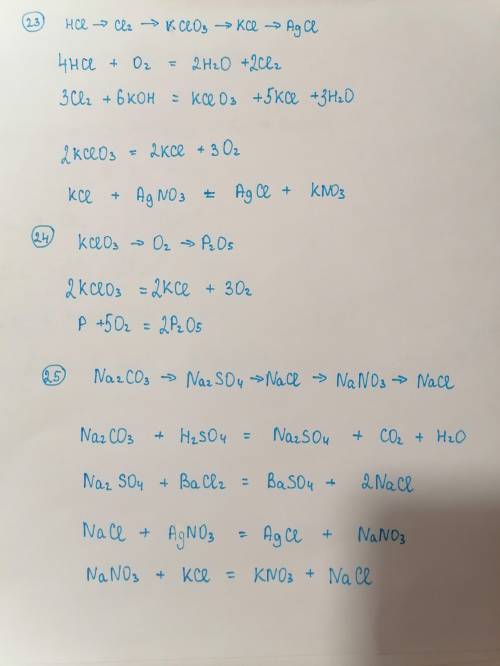 23 HCl → Cl2 → KClO3 → KCl → AgCl
4HCl + O2 = 2H2O + 2Cl2
3Cl2 + 6KOH = KClO3 + 5KCl + 3H2O
2KClO3 = 2KCl + 3O2
KCl + AgNO3 = AgCl + KNO3
24 KClO3 → O2 → P2O5
2KClO3 = 2KCl + 3O2
P + 5O2 = 2P2O5
25 Na2CO3 → Na2SO4 → NaCl → NaNO3 → NaCl
Na2CO3 + H2SO4 = Na2SO4 + CO2 + H2O
Na2SO4 + BaCl2 = BaSO4 + 2NaCl
NaCl + AgNO3 = AgCl + NaNO3
NaNO3 + KCl = KNO3 + NaCl